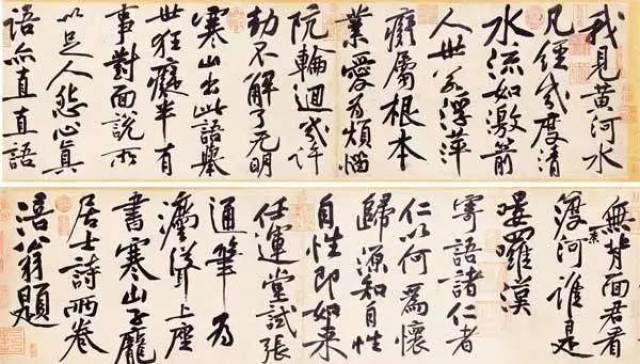 我見黃河水
凡經幾度清
水流如激箭
人世若浮萍
癡屬根本
業愛為煩惱
阬輪迴幾許
劫不解了无明
寒山出此語舉
世狂癡半有
事對面說所
以足人愁心真
語亦直直語
無背面君看
渡奈河誰是
嘍羅漢
寄語諸仁者
仁以何為懷
歸源知自性
自性即如來
任運堂試張
通筆為
灋聳上座
書寒山子龐
居士詩兩卷
涪翁題